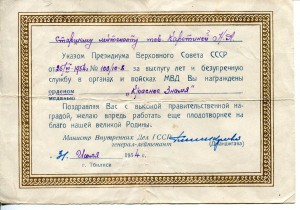 Старшему лейтенанту тов.
Указом Президиума Верховного Совета СССР
от
за выслугу лет и безупречную
службу в органах и войсках МВД Вы награждены
орденом
медалью
„Красное Знамя"
Поздравляя Вас с высокой правительственной на-
градой, желаю впредь работать еще плодотворнее на
благо нашей великой Родины.
Министр Внутренних Дел ГССР
генерал-лейтенант
31 Июля 1954 г.
г. Тбилиси